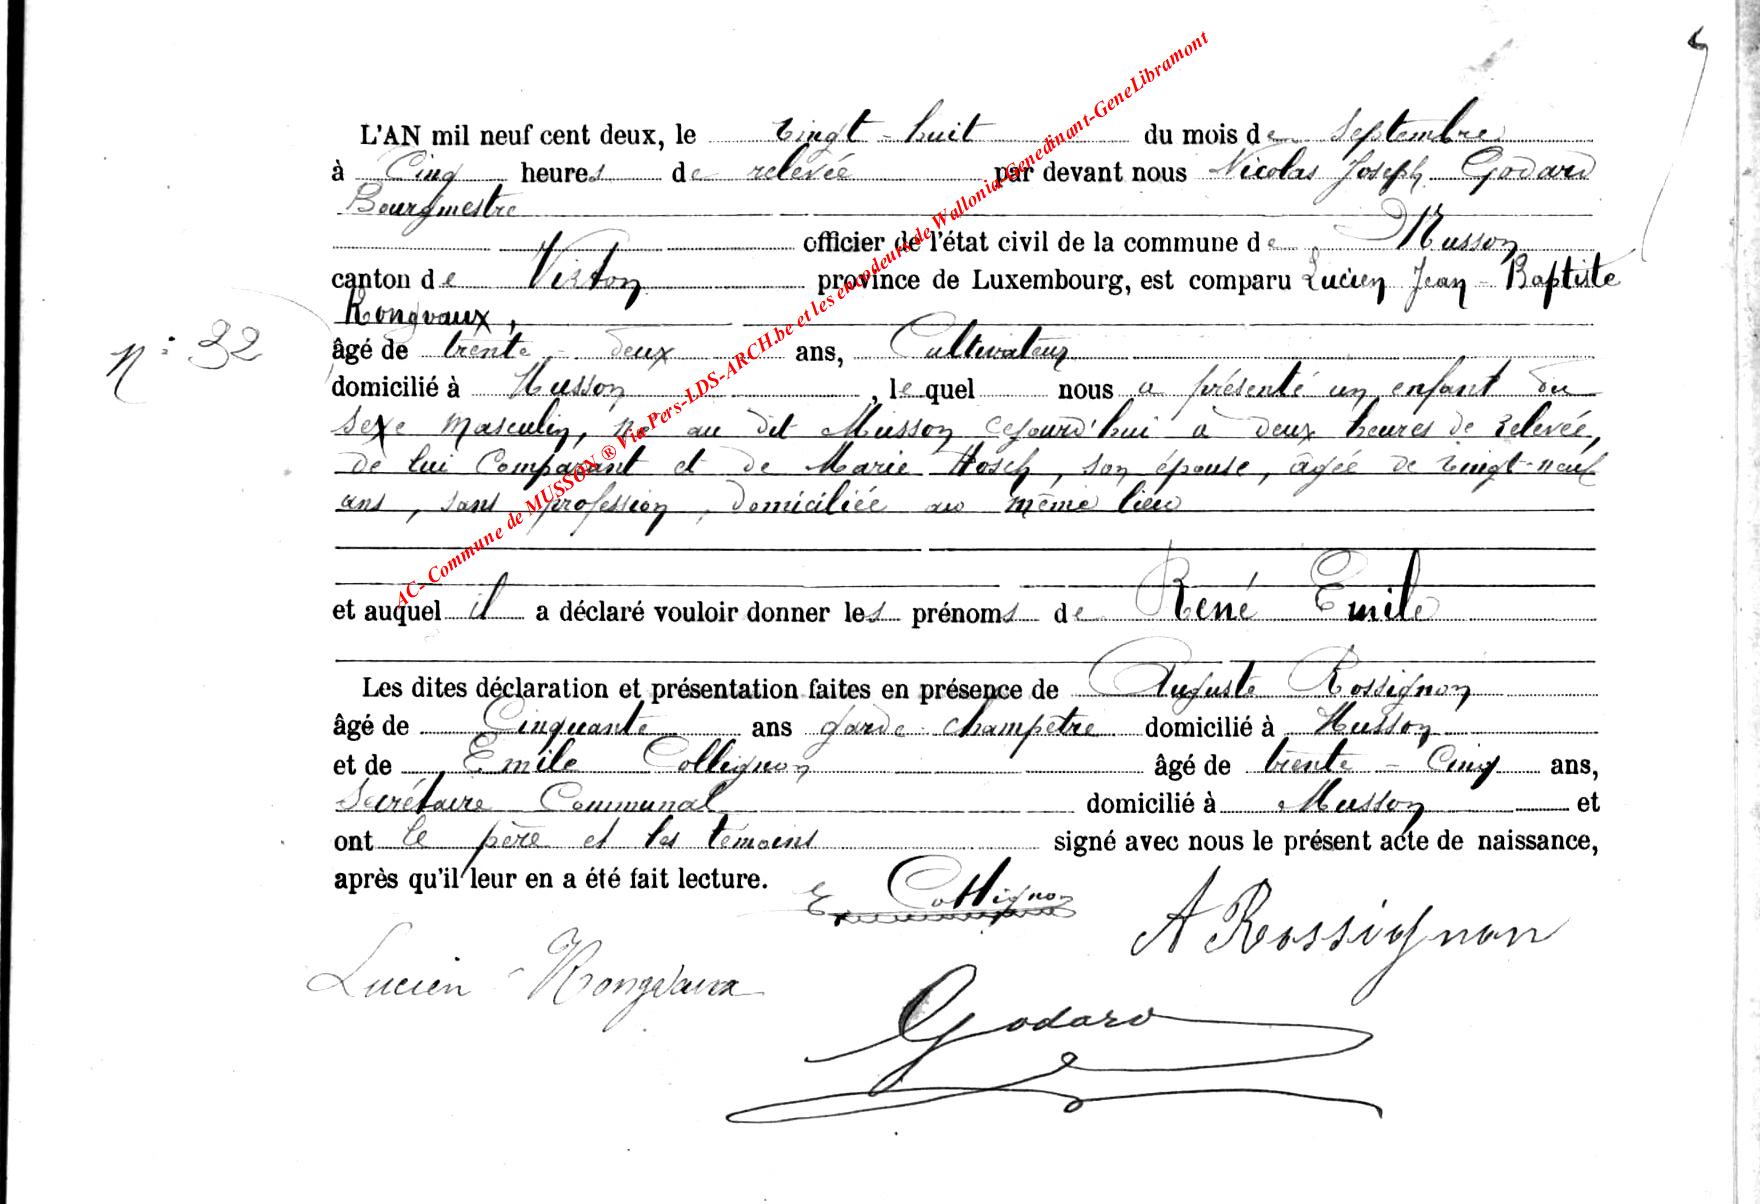 L'AN mil neuf cent deux, le vingt-huit du mois de septembre
à Cinq heures de relevée par devant nous Nicolas Joseph Godard
Bourgmestre
officier de l'état civil de la commune de Musson
canton de Virton province de Luxembourg, est comparu Lucien Jean-Baptiste
Rongvaux,
N° 32
âgé de trente-deux ans, Cultivateur
domicilié à Musson, lequel nous a présenté un enfant du
sexe masculin, né au dit Musson cejourd'hui à deux heures de relevée,
de lui Comparant et de Marie Hosch, son épouse, âgée de vingt-neuf
ans, sans profession, domiciliée au même lieu
et auquel il a déclaré vouloir donner les prénoms de René Emile
Les dites déclaration et présentation faites en présence de Auguste Rossignon
âgé de Cinquante ans garde-champêtre domicilié à Musson
et de Emile Collignon âgé de trente-Cinq ans,
Secrétaire Communal domicilié à Musson et
ont le père et les témoins signé avec nous le présent acte de naissance,
après qu'il leur en a été fait lecture.
E Collignon
A Rossignon
Lucien Rongvaux
Godard
AC- Commune de MUSSON ® Via Pers-LDS-ARCH.be et les encodeurs de Wallonia-Genedinant-GeneLibramont